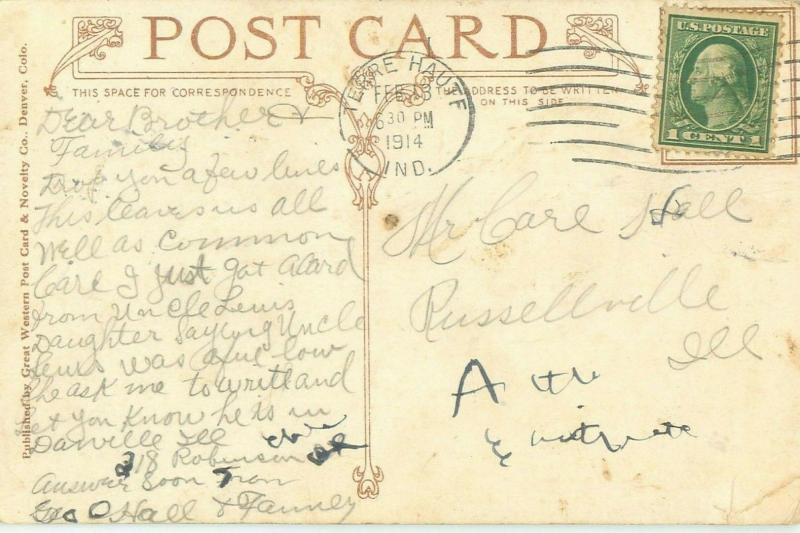 POST CARD
THIS SPACE FOR CORRESPONDENCE
THE ADDRESS TO BE WRITTEN
ON THIS SIDE
U.S. POSTAGE
1 CENT 1
TERRE HAUTE
FEB 3
630 PM
1914
IND.
Published by Great Western Post Card & Novelty Co., Denver, Colo.
Dear Brother &
Family
Drop you a few lines
This leaves us all
Well as Common
Carl I Just got a Card
from Uncle Lewis
Daughter Saying Uncle
Lewis was awful low
She ask me to write and
let you Know he is in
Danville Ill
218 Robinson St
Answer Soon From
Geo O Hall & Fanney
Mr Carl Hall
Russellville
Ill